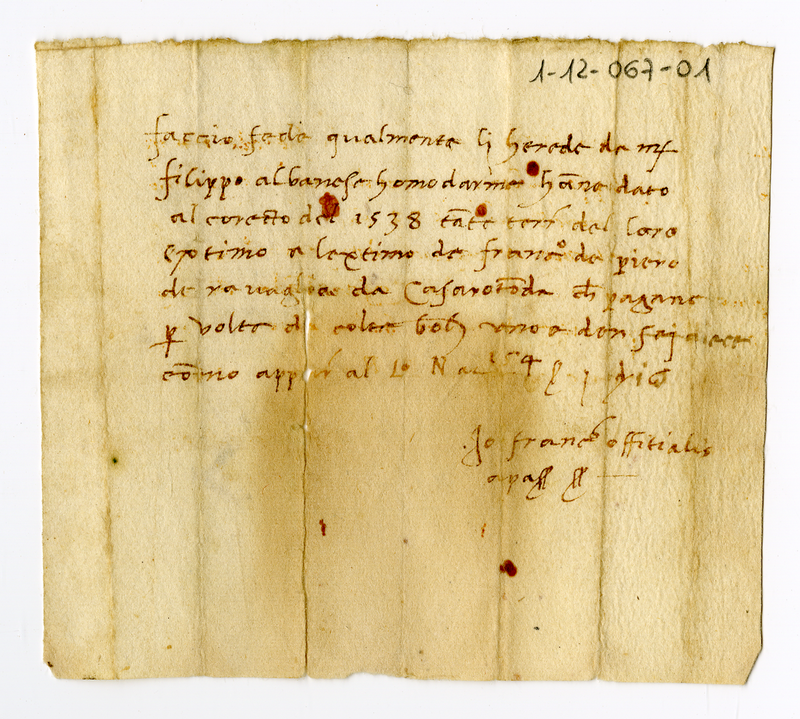 1-12-067-01
faccio fede qualmente li herede de mr
filippo albanese homodarme hāne dato
al coretto del 1538 tāte terr del loro
eptimo e lextimo de franco de piero
de ravaglia da Casarotōda ch pagane
p volta de colta uno e den sei
cōmo al Lo N
Jo franco offitialis